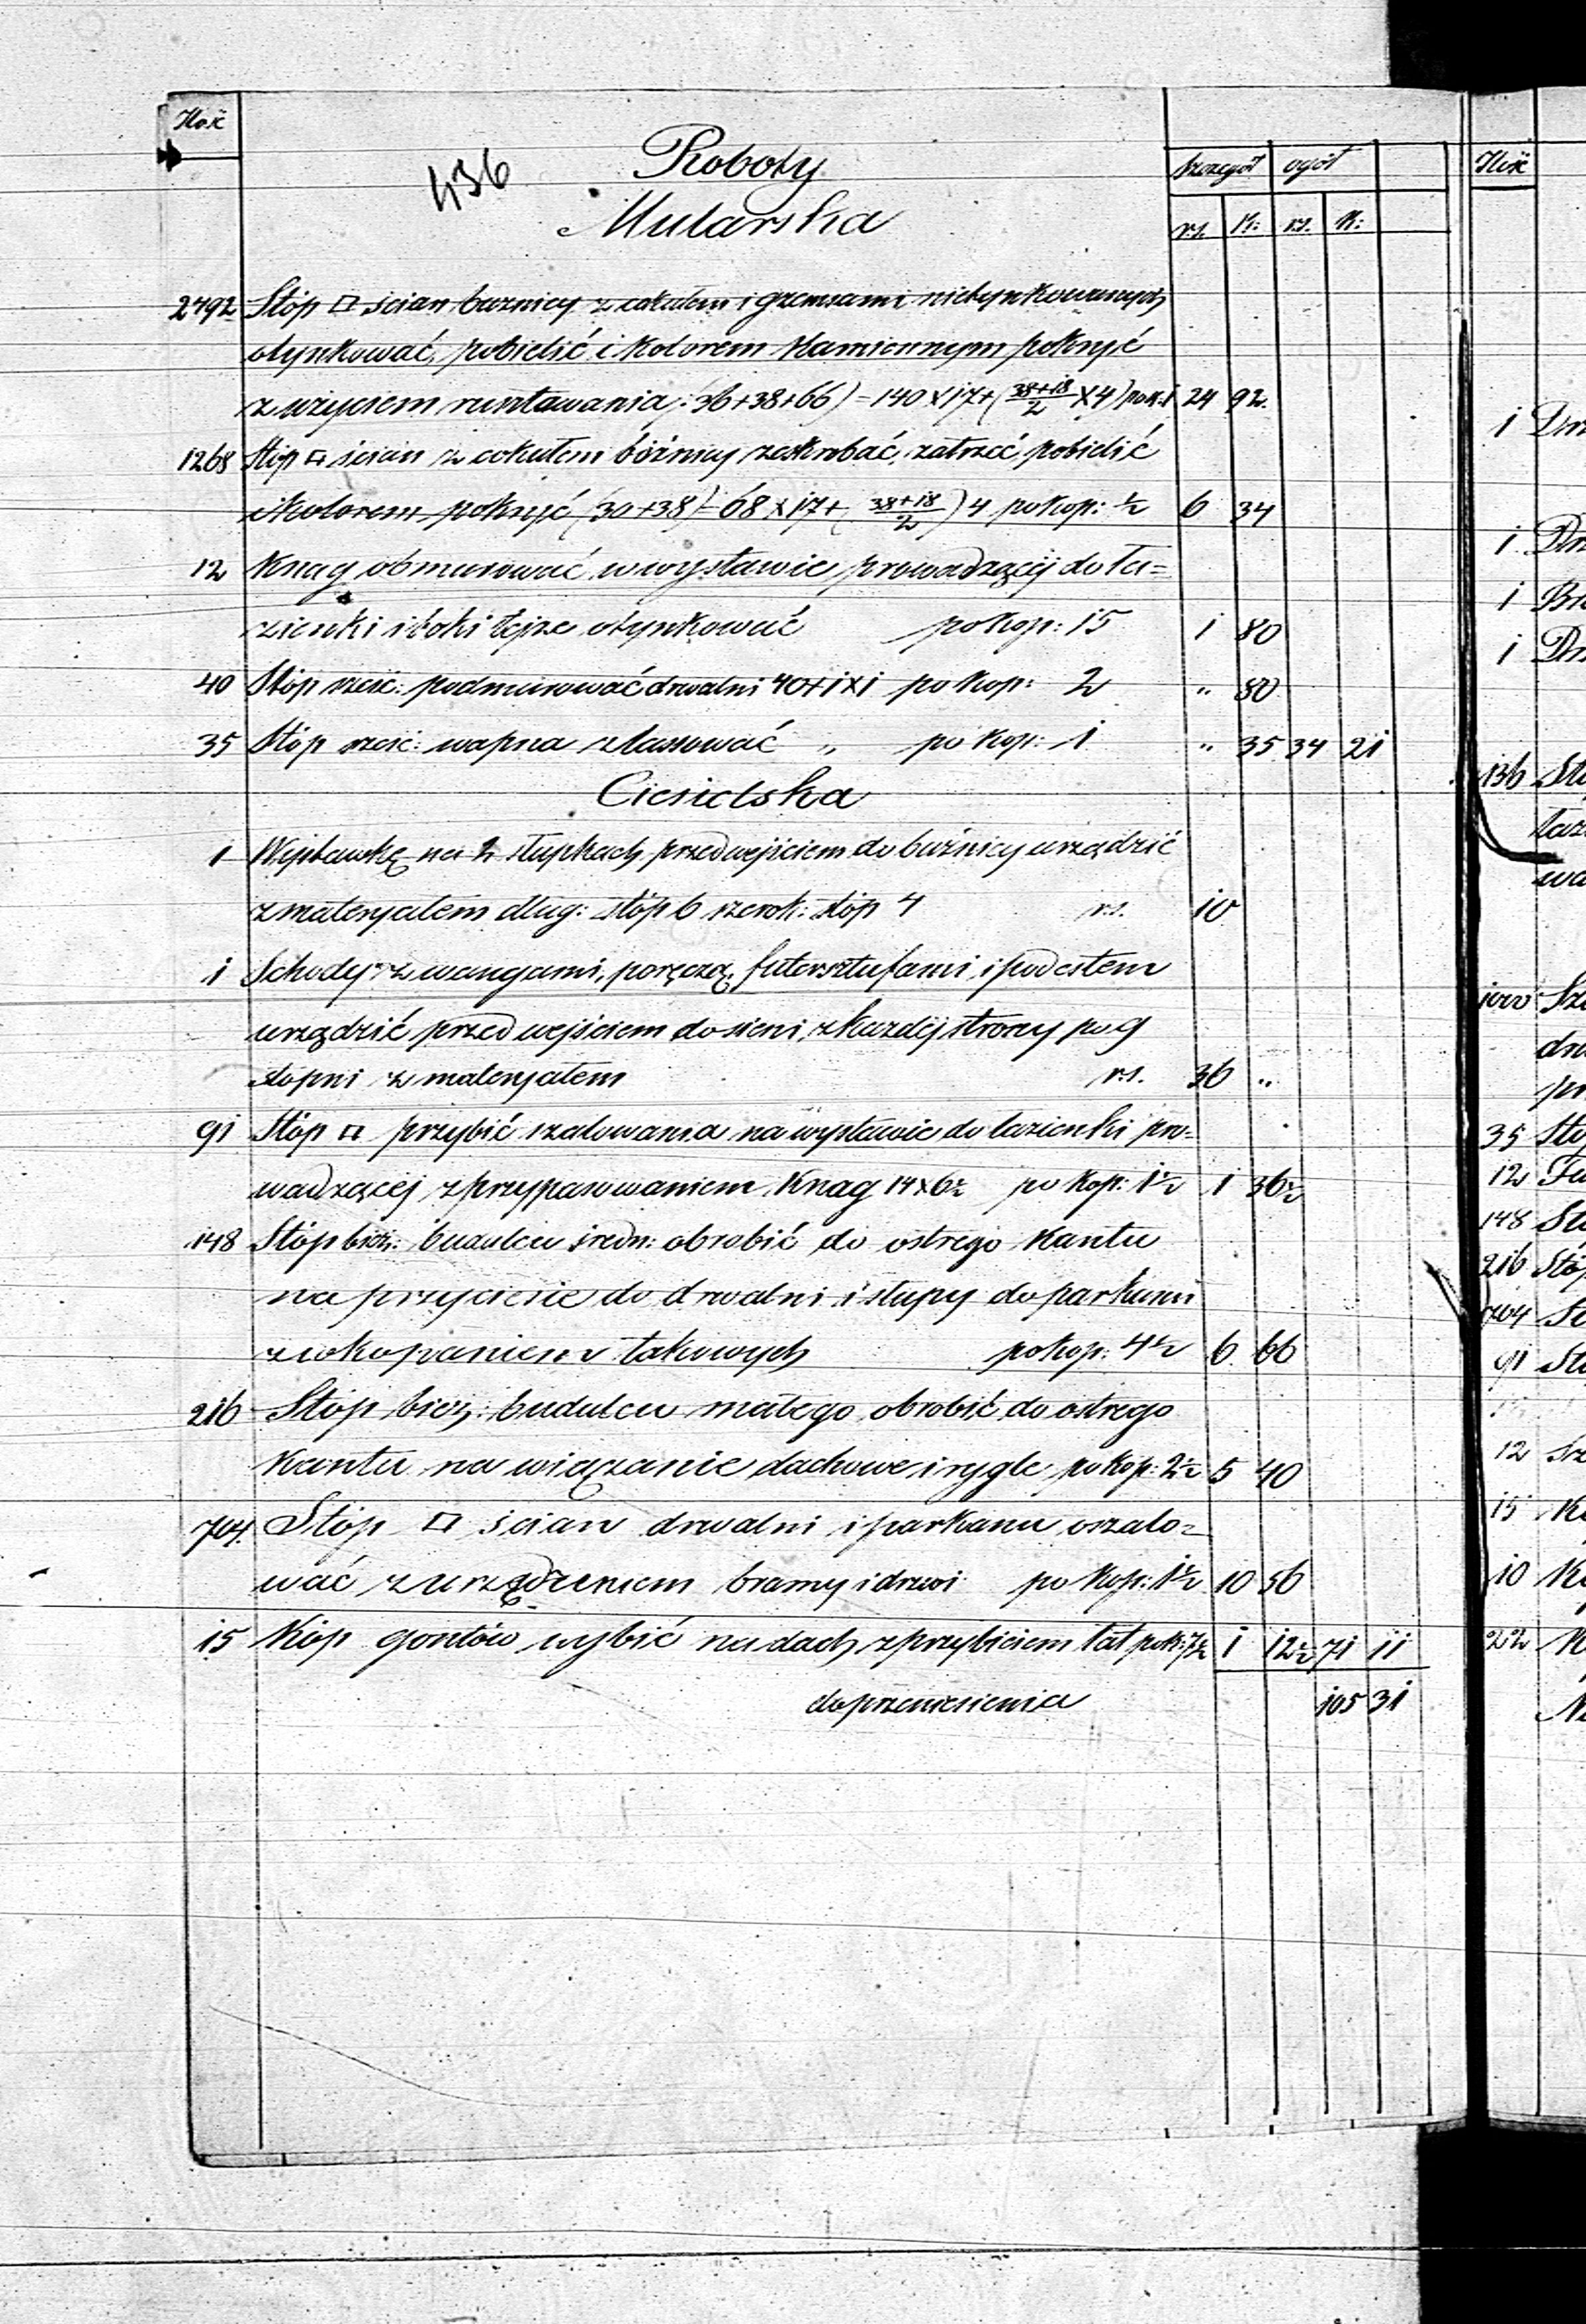 Ilość
436
Roboty
Mularska
Szczegół ogół
rs. k: rs. k:
2492 Stóp □ ścian buźnicy z cokułem i gzemsami nietynkowanych
otynkować, pobielić i kolorem kamiennym pokryć
z użyciem runtowania /:36+38+66) = 140 x 17 + (38+18/2 x 4) po k: 1 24 92.
1268 Stóp □ ścian z cokułem bóźnicy zeskrobać, zatrzeć, pobielić
i kolorem pokryć (30+38) = 68 x 17 + (38+18/2) 4 po kop: ½ 6 34
12 Knag obmurować w wystawie prowadzącéj do ła=
zienki i boki tejże otynkować po kop: 15 1 80
40 Stóp sześć: podmurować drwalni 40+1x1 po kop: 2 " 80
35 Stóp sześć: wapna zlasować " po kop: 1 " 35 34 21
Ciesielska
1 Wystawkę na 2 słupkach przed wejściem do buźnicy urządzić
z materyałem dług: stóp 6 szerok: stóp 4 rs. 10
1 Schody z wangami, poręczą, futersztufami i podestem
urządzić przed wejściem do sieni, z każdéj strony po 9
stopni z materyałem rs. 36 "
91 Stóp □ przybić szalowania na wystawie do łazienki pro=
wadzącéj z przypasowaniem knag 14 x 6½ po kop: 1½ 1 36½
148 Stóp bież: budulcu średn: obrobić do ostrego kantu
na przyciesie do drwalni i słupy do parkanu
z wkopaniem takowych po kop: 4½ 6 66
216 Stóp bież: budulcu małego obrobić do ostrego
kantu na wiązanie dachowe i rygle po kop: 2½ 5 40
704. Stóp □ ścian drwalni i parkanu oszalo=
wać z urządzeniem bramy i drzwi po kop: 1½ 10 56
15 Kóp gontów wybić na dach z przybiciem łat po k: 7½ 1 12½ 71 11
do przeniesienia 105 31
Ilość
1
1
1
1
136
wa
1000
35
12
148
216
704
91
12
15
10
22